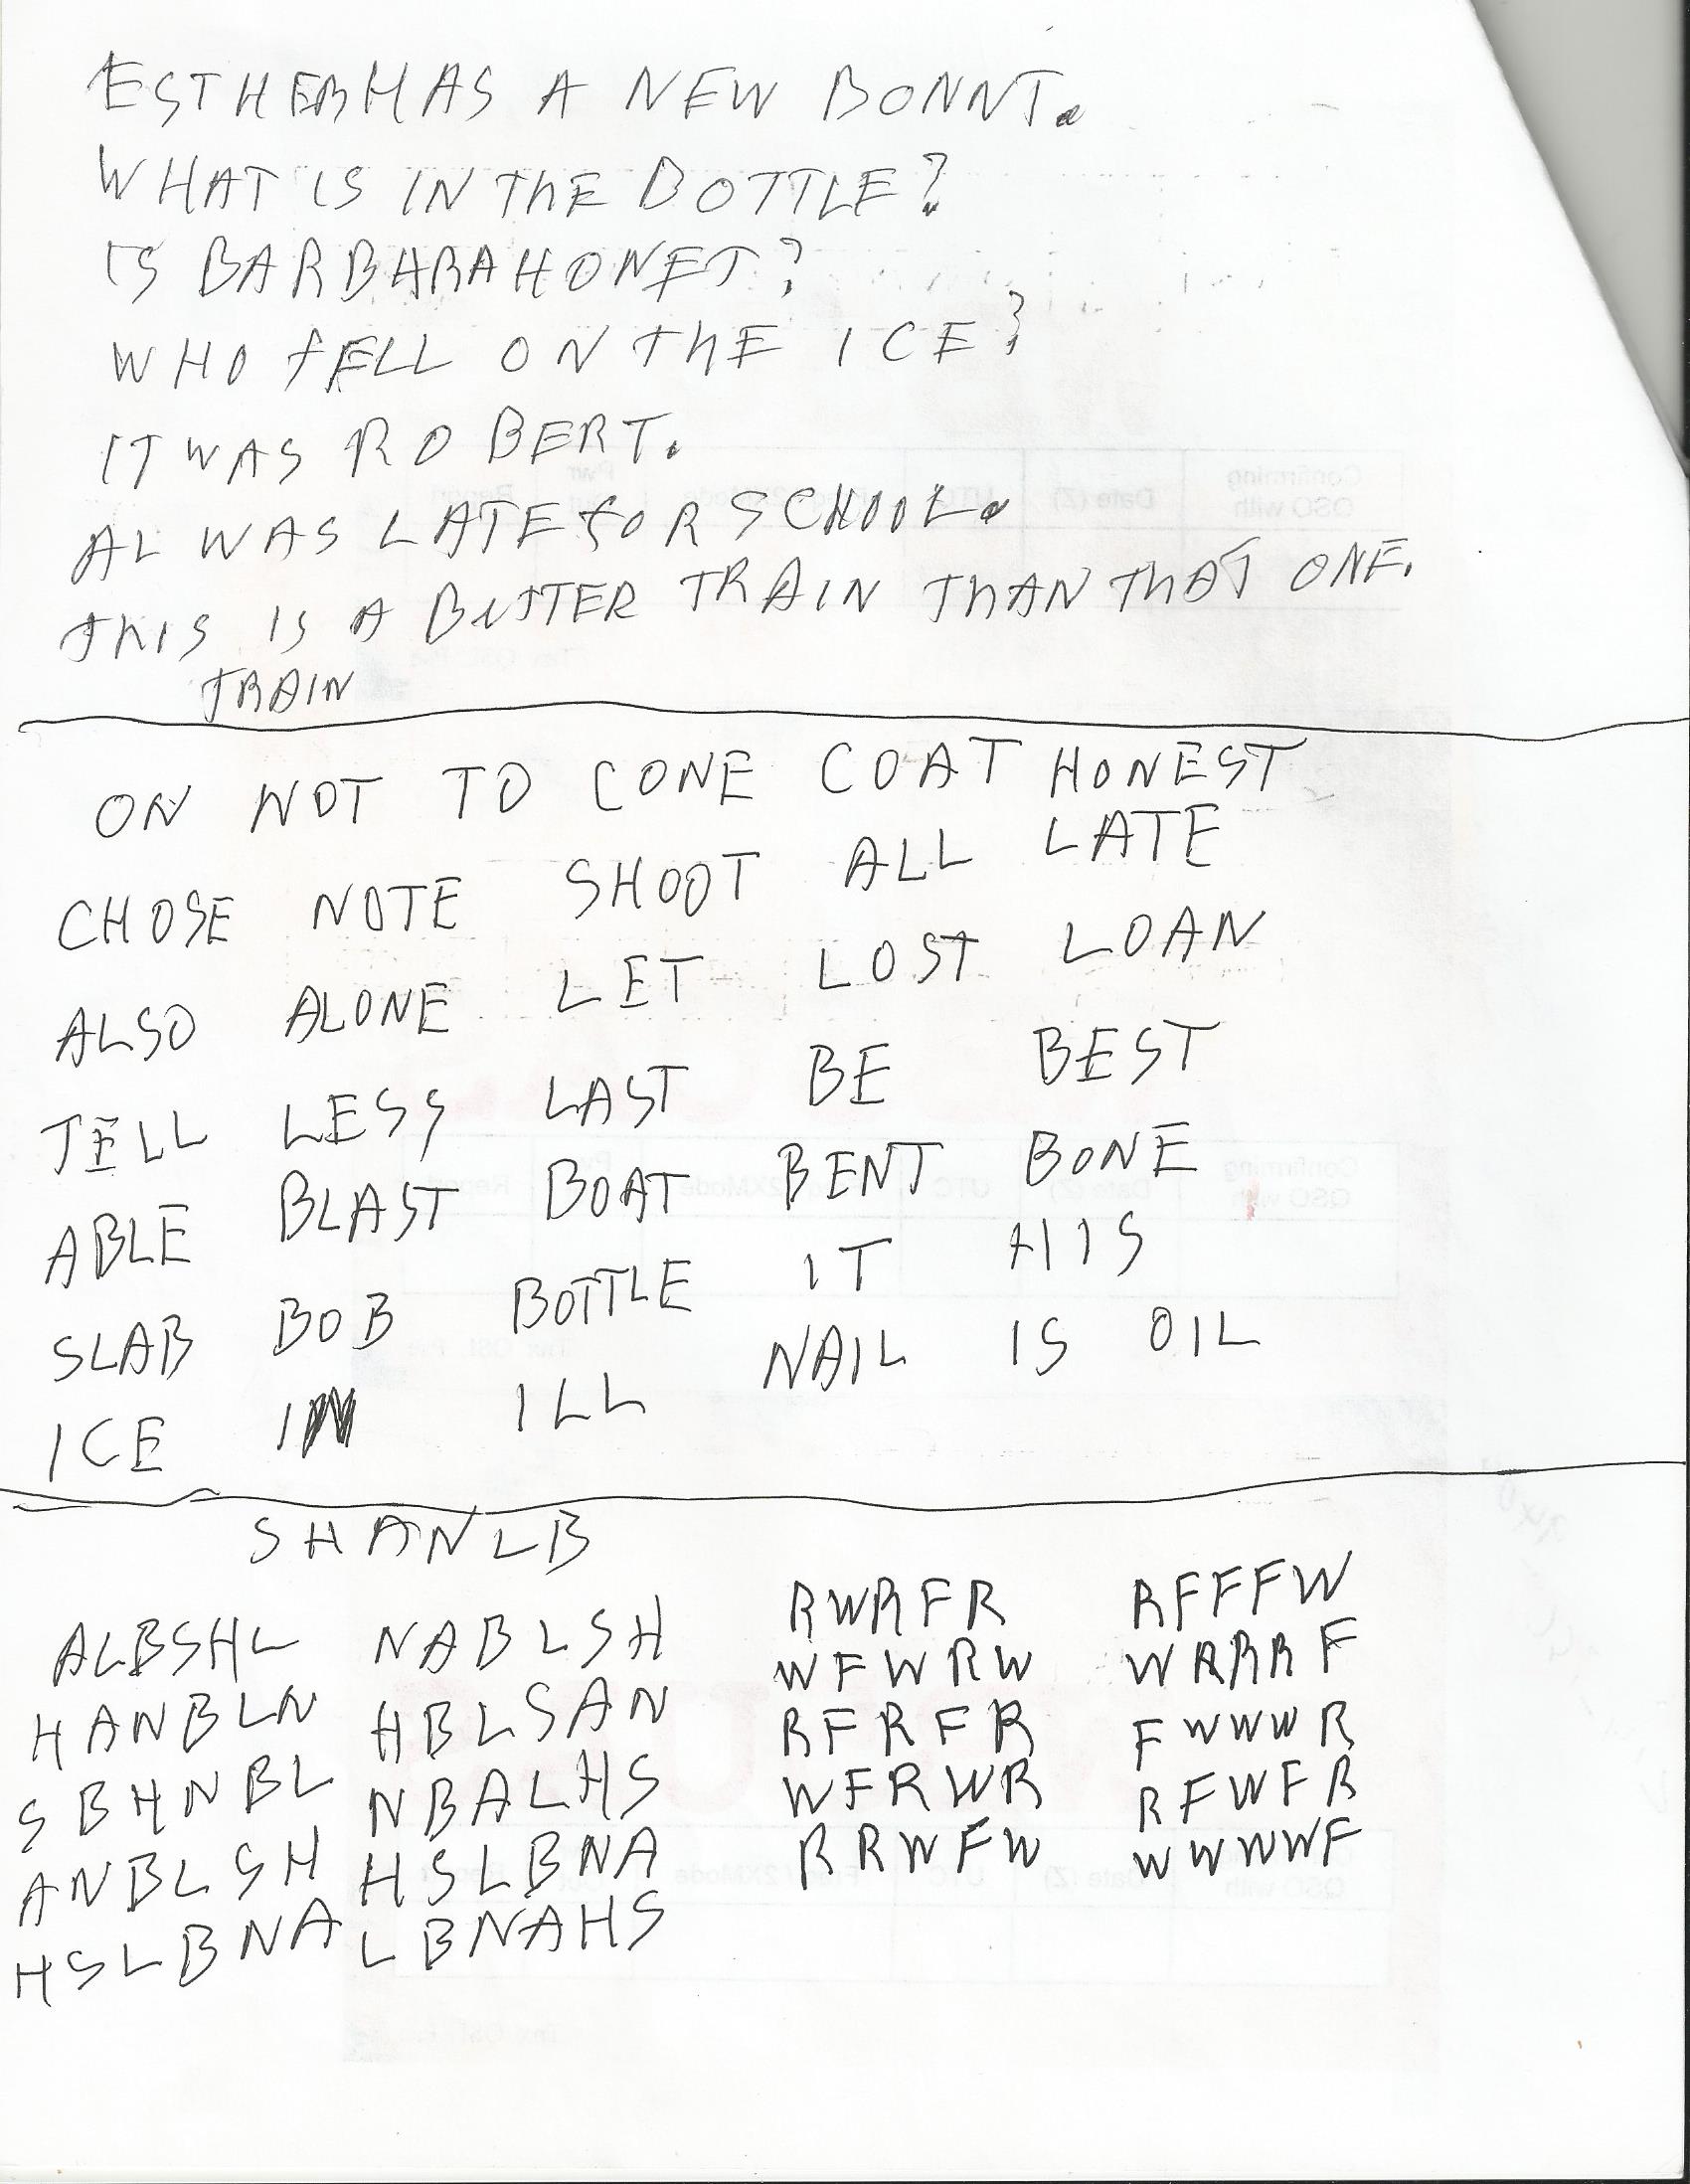 ESTHER HAS A NEW BONNT.
WHAT IS IN ThE BOTTLE?
IS BARBARA HONET?
WHO fELL ON ThE ICE?
IT WAS ROBERT.
AL WAS LATE foR SCHOOL.
ThIS IS A BUTTER TRAIN ThAN ThAT ONE.
TRAIN
ON NOT TO CONE COAT HONEST
CHOSE NOTE SHOOT ALL LATE
ALSO ALONE LET LOST LOAN
TELL LESS LAST BE BEST
ABLE BLAST BOAT BENT BONE
SLAB BOB BOTTLE IT HIS
ICE IN ILL NAIL IS OIL
SHANLB
ALBSHL NABLSH RWRFR RFFFW
HANBLN HBLSAN WFWRW WRRRF
SBHNBL NBALHS RFRFR FWWWR
ANBLSH HSLBNA WFRWR RFWFR
HSLBNA LBNAHS RRWFW WWWWF